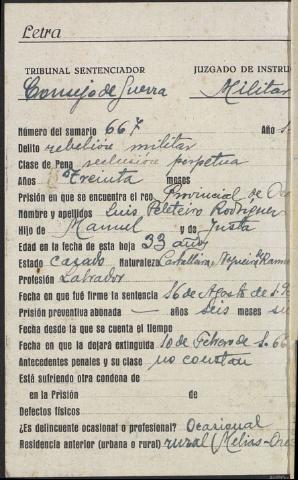 Letra
TRIBUNAL SENTENCIADOR JUZGADO DE INSTRU
Consejo de Guerra Militar
Número del sumario 667 Año
Delito rebelión militar
Clase de Pena reclusión perpetua
Años Treinta meses
Prisión en que se encuentra el reo Provincial de
Nombre y apellidos Luis Peleteiro Rodríguez
Hijo de Manuel y de Justa
Edad en la fecha de esta hoja 33 años
Estado casado Naturaleza
Profesión Labrador
Fecha en que fué firme la sentencia 16 de Agosto de 19
Prisión preventiva abonada — años seis meses
Fecha desde la que se cuenta el tiempo
Fecha en que la dejará extinguida 10 de Febrero de 1.966
Antecedentes penales y su clase no constan
Está sufriendo otra condena de
en la Prisión de
Defectos físicos
¿Es delincuente ocasional o profesional? Ocasional
Residencia anterior (urbana o rural) rural (Melias-Ore